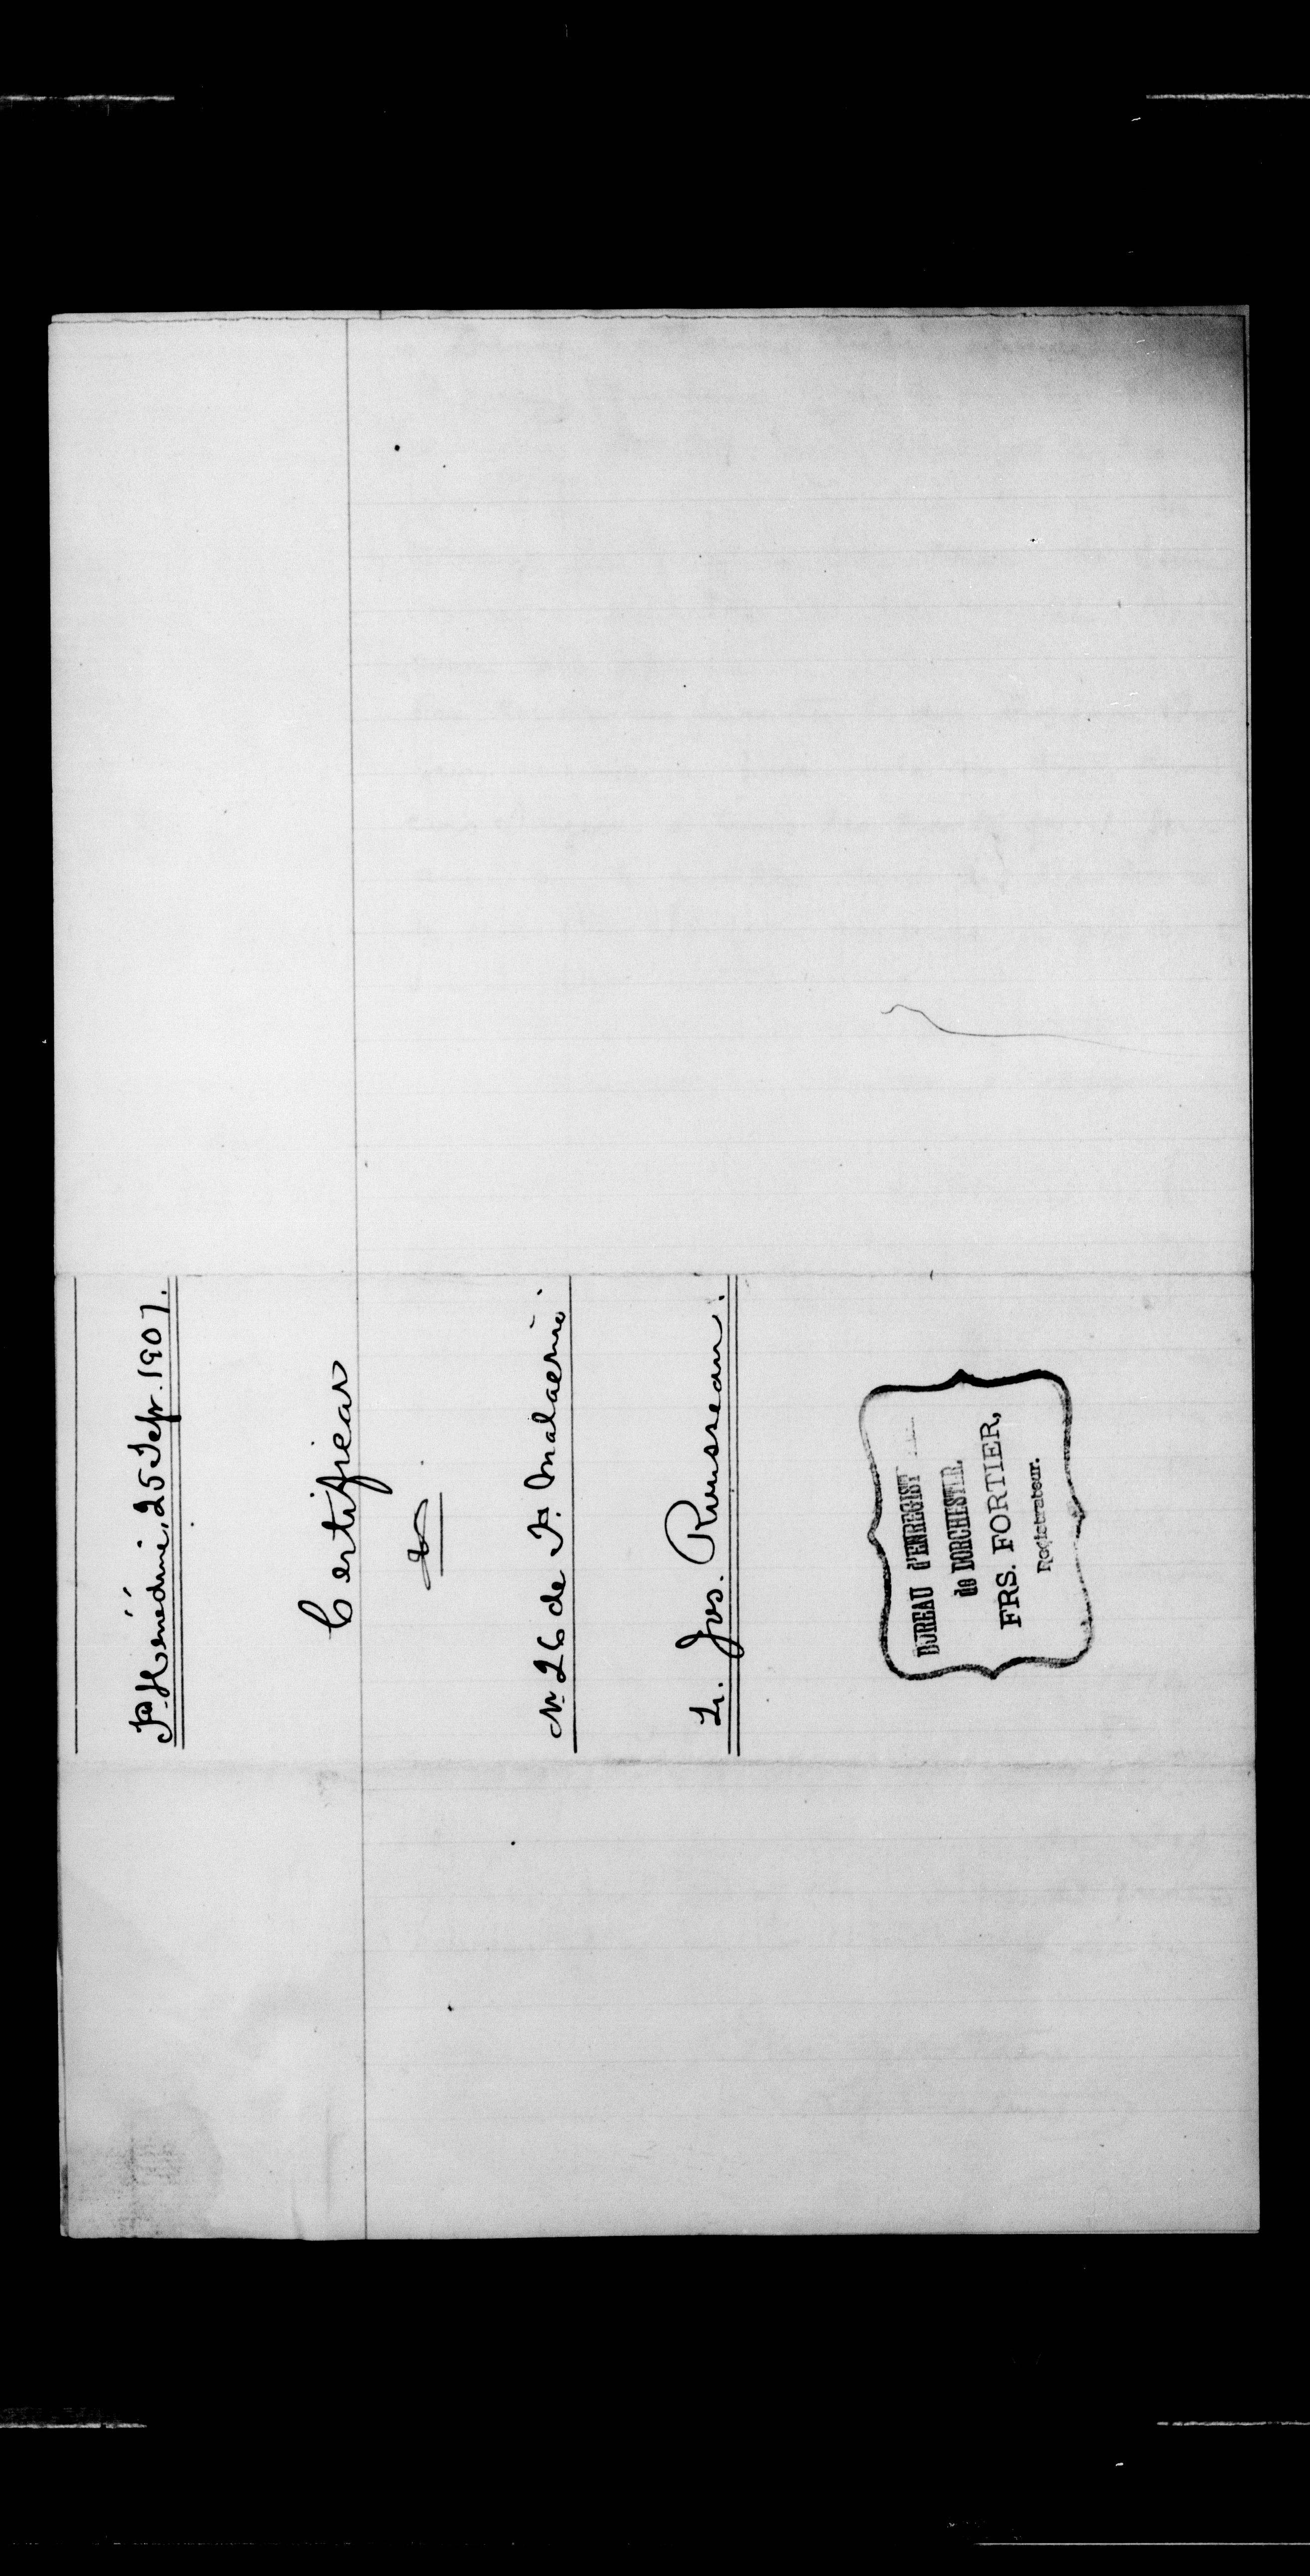 Ste Hénédine, 25 Sept. 1907.
Certificat
N° 26 de St. Malachie.
Jos. Rousseau.
BUREAU d'ENREGIST
de DORCHESTER.
FRS. FORTIER,
Registrateur.